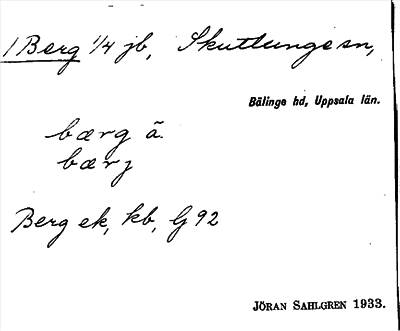 1 Berg 1/4 jb, Skuttunge sn,
Bälinge hd, Uppsala län.
bærg ã.
bærj
Berg ek, kb, G 92
JÖRAN SAHLGREN 1933.